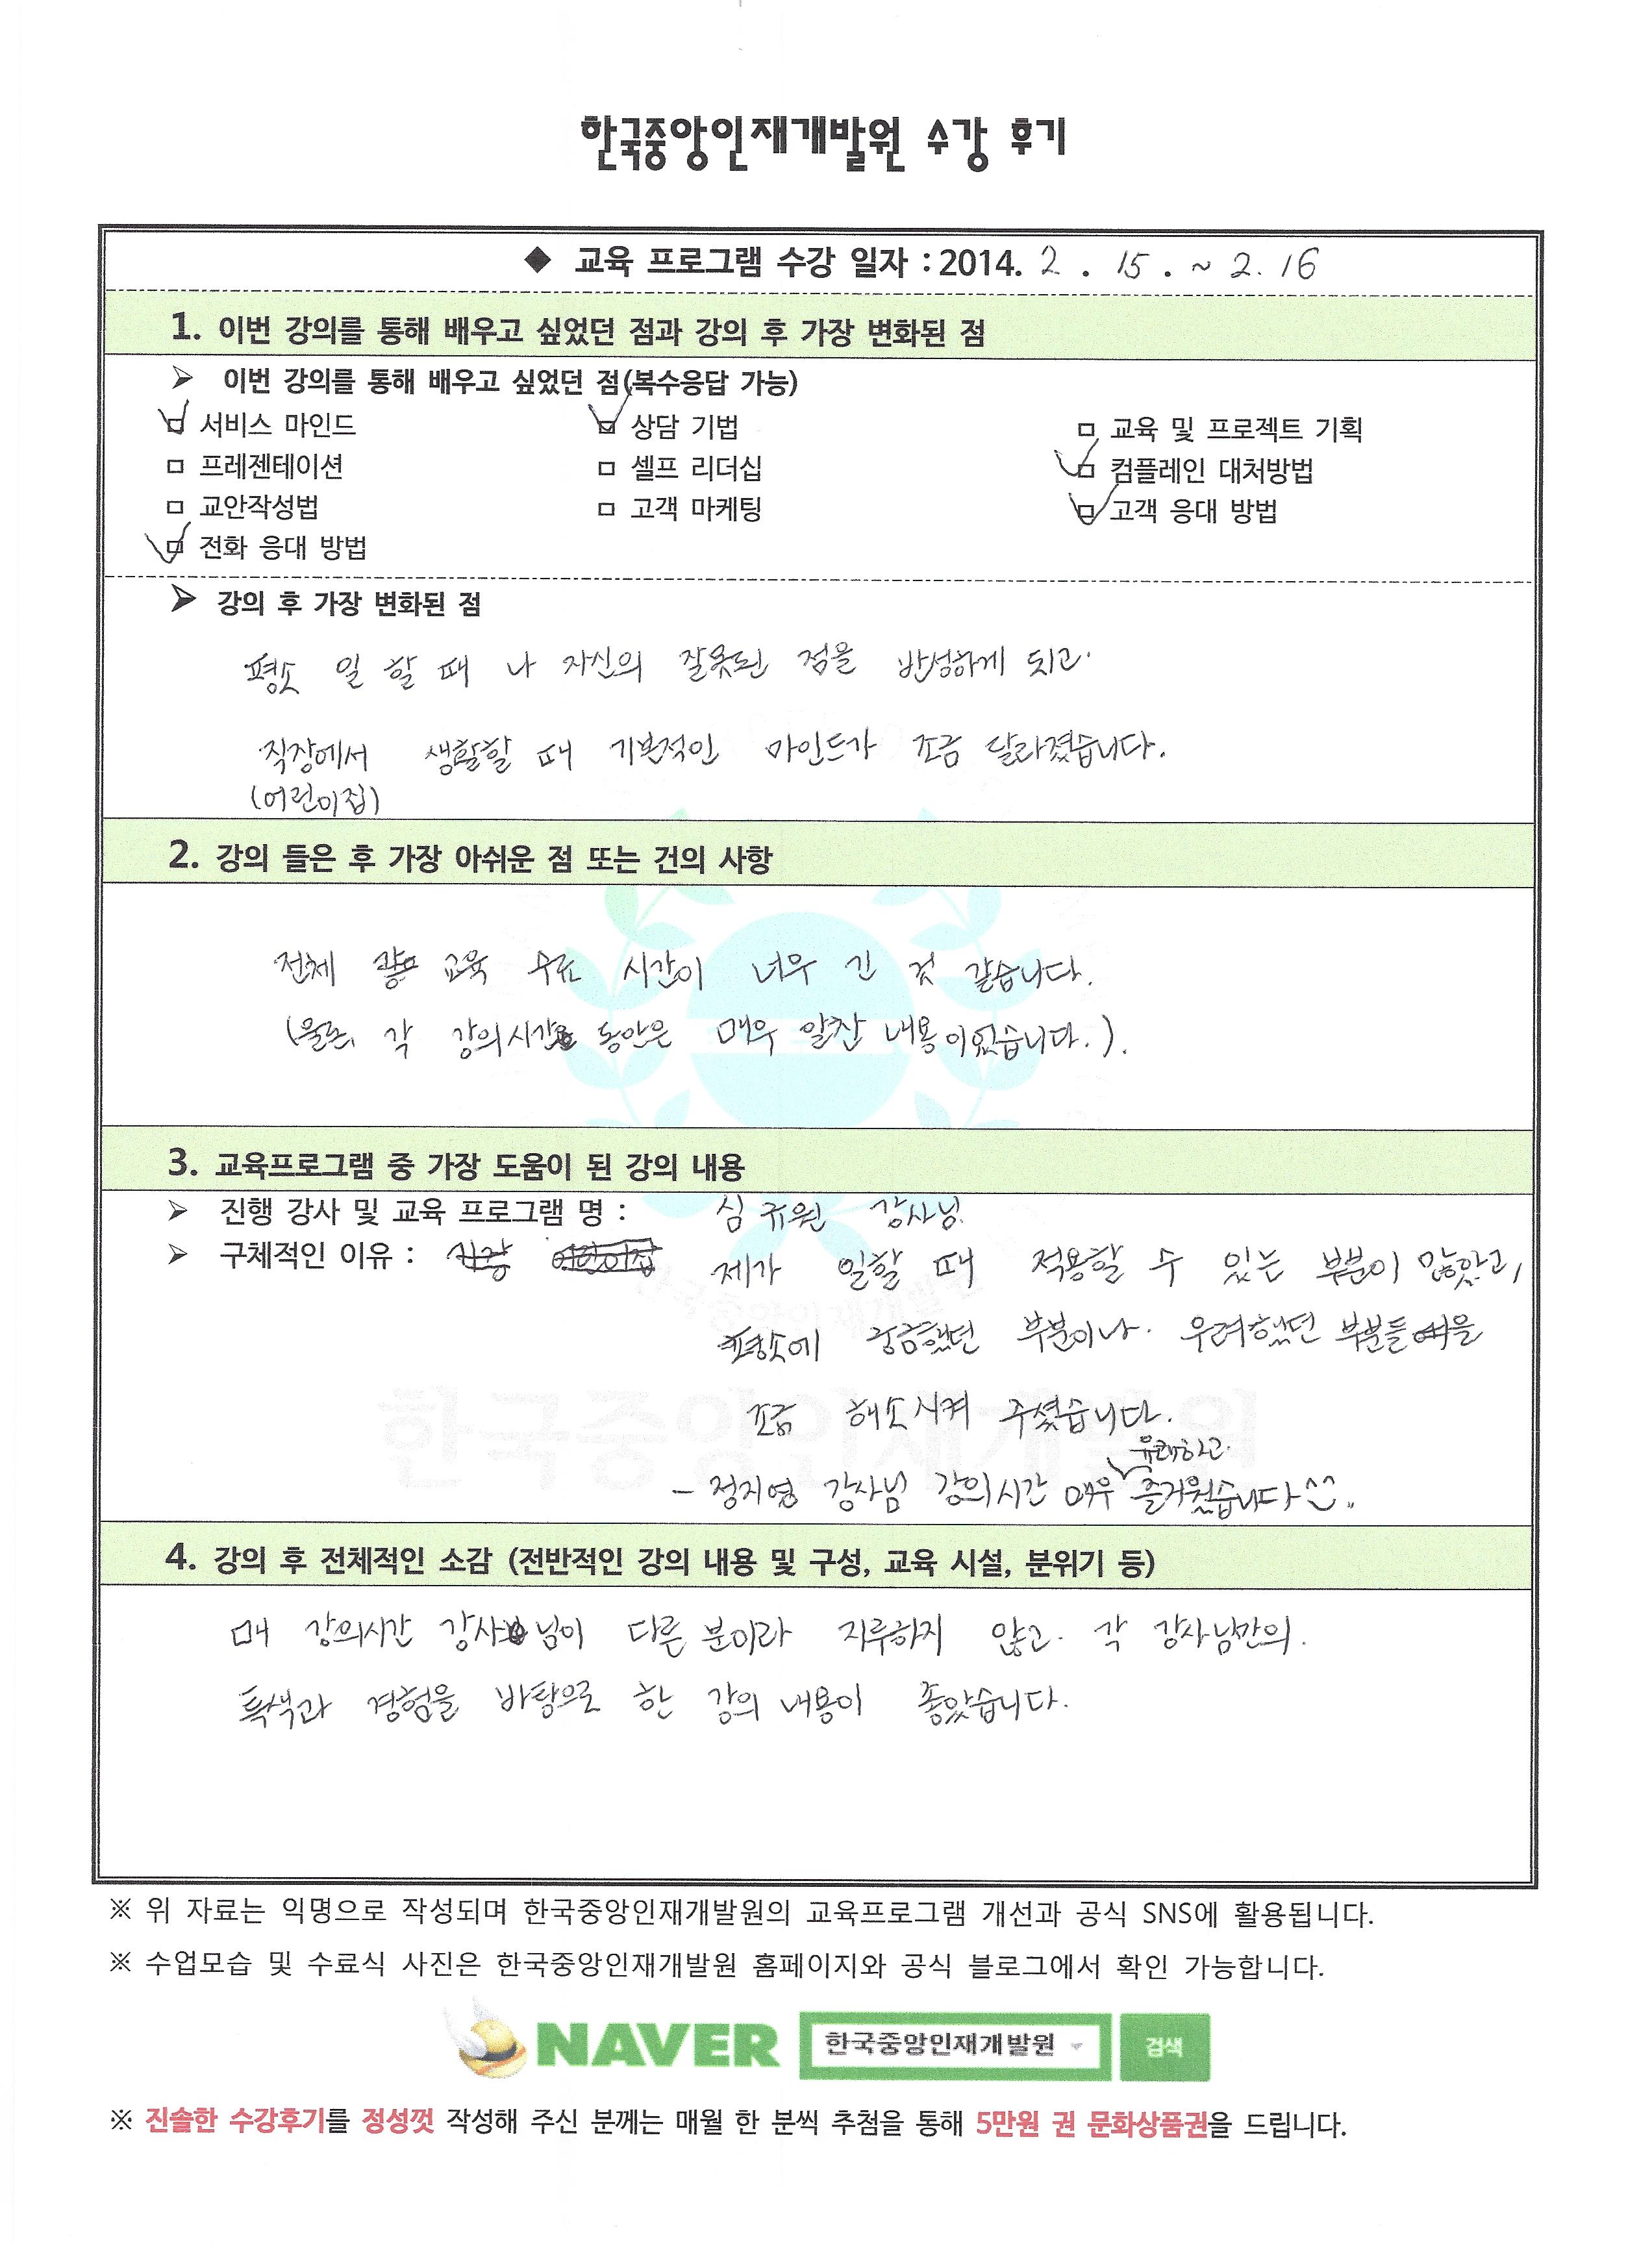 한국중앙인재개발원 수강 후기
◆ 교육 프로그램 수강 일자 : 2014. 2 . 15 . ~ 2. 16
1. 이번 강의를 통해 배우고 싶었던 점과 강의 후 가장 변화된 점
➢ 이번 강의를 통해 배우고 싶었던 점(복수응답 가능)
☑ 서비스 마인드 ☑ 상담 기법 □ 교육 및 프로젝트 기획
□ 프레젠테이션 □ 셀프 리더십 ☑ 컴플레인 대처방법
□ 교안작성법 □ 고객 마케팅 ☑ 고객 응대 방법
☑ 전화 응대 방법
➢ 강의 후 가장 변화된 점
평소 일 할 때 나 자신의 잘못된 점을 반성하게 되고
직장에서 생활할 때 기본적인 마인드가 조금 달라졌습니다.
(어린이집)
2. 강의 들은 후 가장 아쉬운 점 또는 건의 사항
전체 교육 수료 시간이 너무 긴 것 같습니다.
(물론, 각 강의시간 동안은 매우 알찬 내용이었습니다.).
3. 교육프로그램 중 가장 도움이 된 강의 내용
➢ 진행 강사 및 교육 프로그램 명 : 심규원 강사님
➢ 구체적인 이유 : 제가 일할 때 적용할 수 있는 부분이 많았고,
평소에 궁금했던 부분이나 우려했던 부분들을
조금 해소시켜 주셨습니다.
유쾌하고
- 정지영 강사님 강의시간 매우 즐거웠습니다^^.
4. 강의 후 전체적인 소감 (전반적인 강의 내용 및 구성, 교육 시설, 분위기 등)
매 강의시간 강사님이 다른 분이라 지루하지 않고 각 강사님만의
특색과 경험을 바탕으로 한 강의 내용이 좋았습니다.
※ 위 자료는 익명으로 작성되며 한국중앙인재개발원의 교육프로그램 개선과 공식 SNS에 활용됩니다.
※ 수업모습 및 수료식 사진은 한국중앙인재개발원 홈페이지와 공식 블로그에서 확인 가능합니다.
NAVER 한국중앙인재개발원 검색
※ 진솔한 수강후기를 정성껏 작성해 주신 분께는 매월 한 분씩 추첨을 통해 5만원 권 문화상품권을 드립니다.